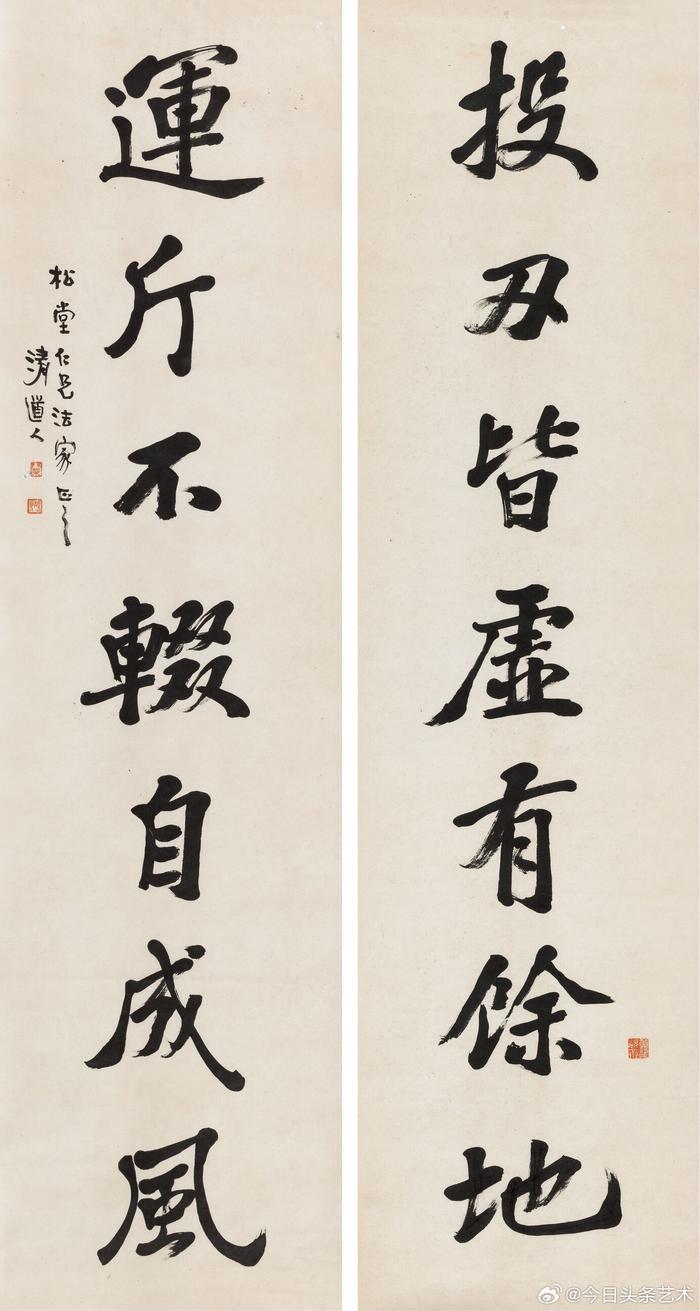 投刃皆虛有餘地
運斤不輟自成風
松堂仁兄法家正之
清道人
@今日头条艺术